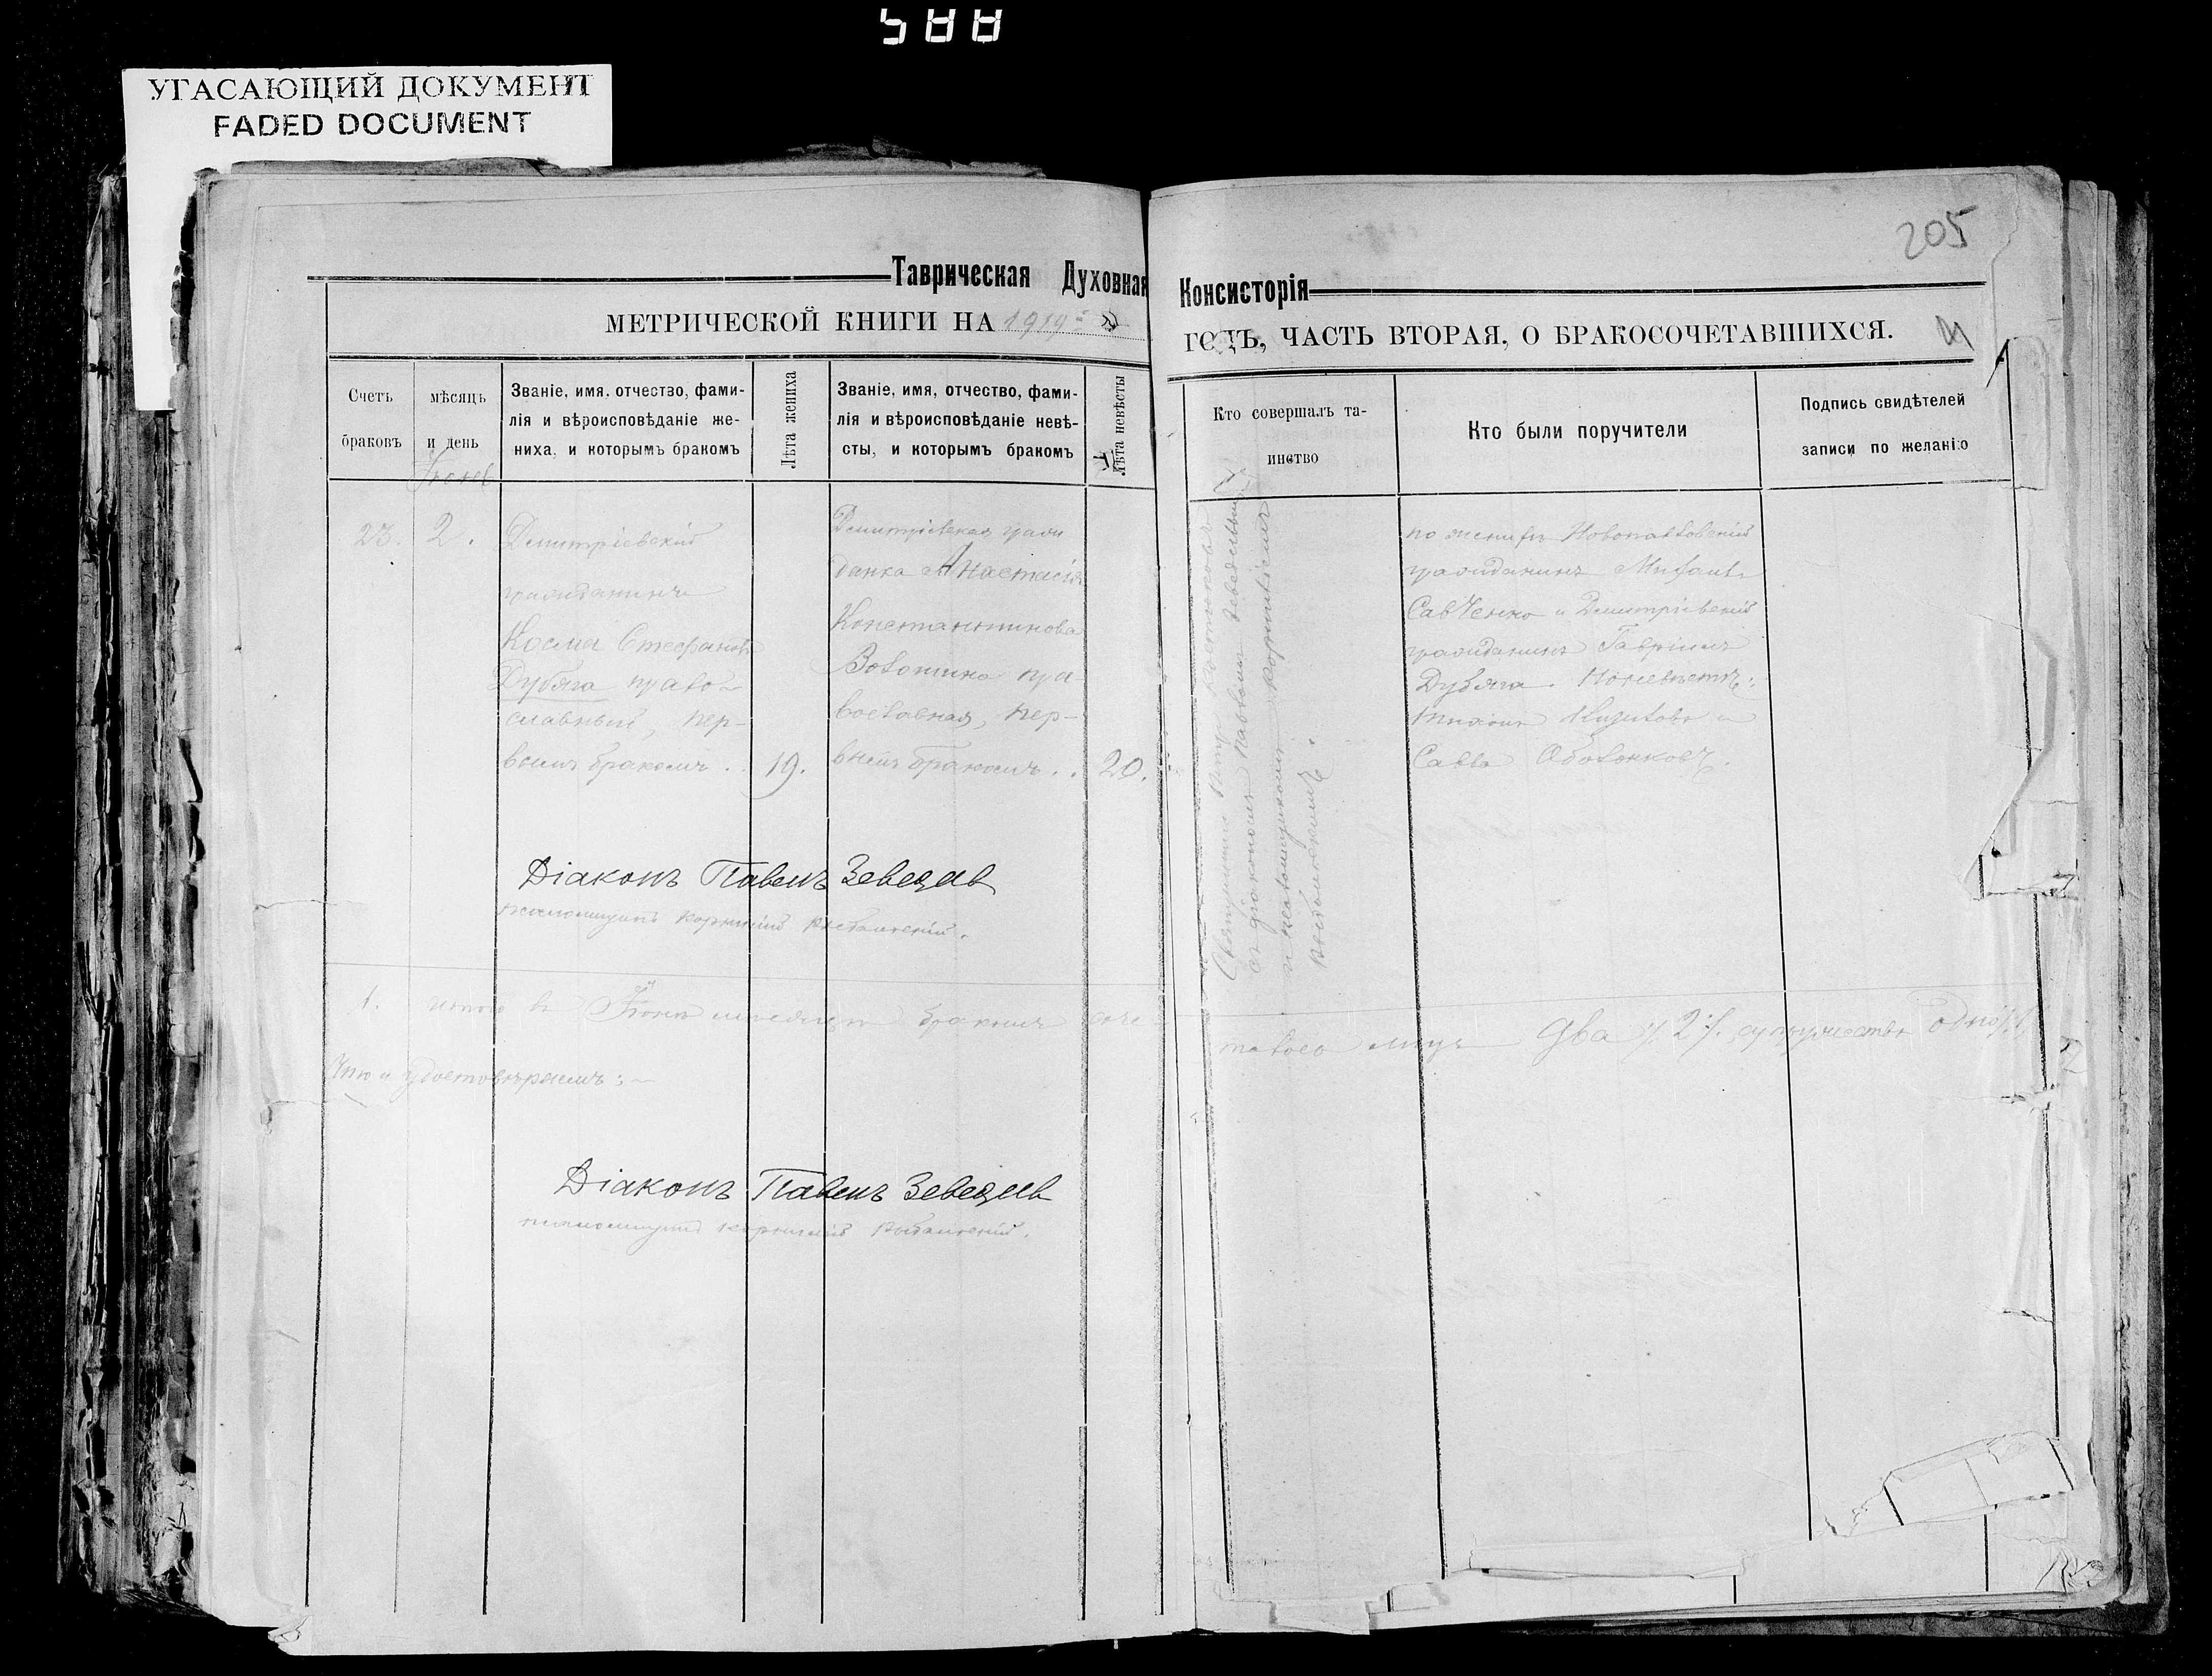 588
УГАСАЮЩИЙ ДОКУМЕНТ
FADED DOCUMENT
205
Таврическая Духовная Консисторія
МЕТРИЧЕСКОЙ КНИГИ НА 1919 ГОДЪ, ЧАСТЬ ВТОРАЯ, О БРАКОСОЧЕТАВШИХСЯ.
Счетъ
браковъ
мѣсяцъ
и день
Званіе, имя, отчество, фами-
лія и вѣроисповѣданіе же-
ниха, и которымъ бракомъ
Лѣта жениха
Званіе, имя, отчество, фами-
лія и вѣроисповѣданіе невѣ-
сты, и которымъ бракомъ
Лѣта невѣсты
Кто совершалъ та-
инство
Кто были поручители
Подпись свидѣтелей
записи по желанію
23.
2.
Димитріевскій
гражданинъ
Косма Стефановъ
Дубяга право-
славный, пер-
вымъ бракомъ.
19.
Димитріевская граж
данка Анастасія
Константинова
пра
вославная, пер-
вымъ бракомъ..
20.
Священникъ Петръ
съ діакономъ Павломъ
и псаломщикомъ
по женихѣ Новопавловскій
гражданинъ Михаилъ
Савченко и Димитріевскій
гражданинъ Гавріилъ
Дубяга. По невѣстѣ:
Савва
Діаконъ Павелъ Зеведѣевъ
псаломщикъ
1. итого въ Іюнѣ мѣсяцѣ бракомъ соче
талось лицъ два /2/. супружество одно /1/
Что и удостовѣряемъ:
Діаконъ Павелъ Зеведѣевъ
псаломщикъ